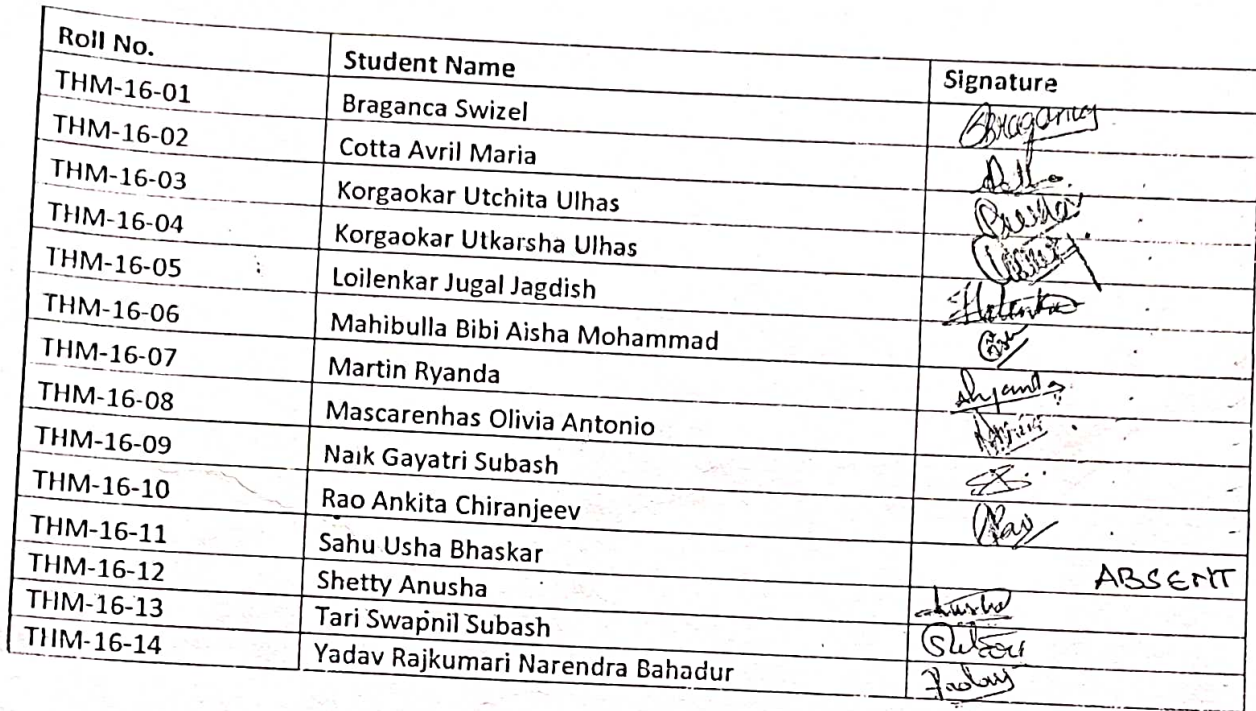 Roll No. Student Name Signature
THM-16-01 Braganca Swizel SBraganca
THM-16-02 Cotta Avril Maria
THM-16-03 Korgaokar Utchita Ulhas
THM-16-04 Korgaokar Utkarsha Ulhas
THM-16-05 Loilenkar Jugal Jagdish
THM-16-06 Mahibulla Bibi Aisha Mohammad
THM-16-07 Martin Ryanda
THM-16-08 Mascarenhas Olivia Antonio
THM-16-09 Naik Gayatri Subash
THM-16-10 Rao Ankita Chiranjeev Rao
THM-16-11 Sahu Usha Bhaskar ABSENT
THM-16-12 Shetty Anusha
THM-16-13 Tari Swapnil Subash
THM-16-14 Yadav Rajkumari Narendra Bahadur